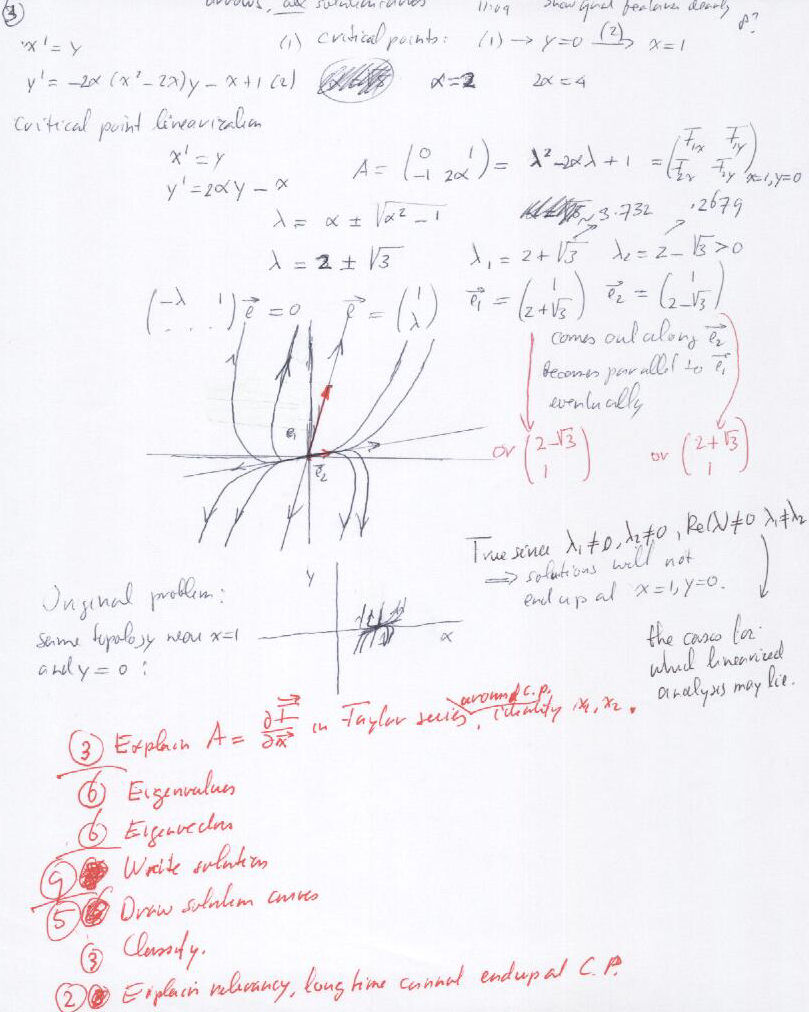 arrows, solution curves show qual features clearly
x' = y (1) critical points: (1) → y=0 (2)→ x=1 8?
y' = -2α (x² - 2x)y - x + 1 (2) α=2 2α=4
Critical point linearization
x' = y
y' = 2αy - x
A = (0 1 / -1 2α) = λ² - 2αλ + 1 = (F1x F1y / F2x F2y) x=1, y=0
λ = α ± √(α² - 1)
~3.732 .2679
λ = 2 ± √3 λ₁ = 2 + √3 λ₂ = 2 - √3 > 0
(-λ 1 / . . . .) e⃗ = 0 e⃗ = (1 / λ) e⃗₁ = (1 / 2+√3) e⃗₂ = (1 / 2-√3)
comes out along e⃗₂
becomes parallel to e⃗₁
eventually
e₁
e⃗₂
or (2-√3 / 1) or (2+√3 / 1)
True since λ₁≠0, λ₂≠0, Re(λ)≠0 λ₁≠λ₂
⇒ solutions will not
end up at x=1, y=0.
the cases for
which linearized
analysis may lie.
Original problem:
same topology near x=1
and y = 0 :
y
x
around c.p.
③ Explain A = ∂F⃗/∂x⃗ in Taylor series, identify x₁, x₂.
⑥ Eigenvalues
⑥ Eigenvectors
⑨ Write solution
⑤ Draw solution curves
③ Classify.
② Explain relevancy, long time cannot end up at C.P.